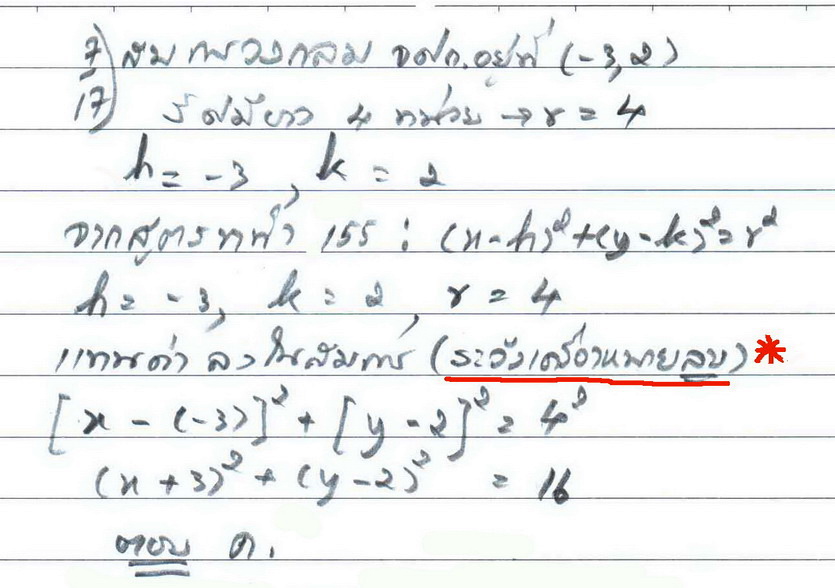 7) สมการวงกลม จศก.อยู่ที่ (-3,2)
17 รัศมียาว 4 หน่วย → r = 4
h = -3, k = 2
จากสูตรหน้า 155 : (x-h)²+(y-k)²=r²
h = -3, k = 2, r = 4
แทนค่า ลงในสมการ (ระวังเครื่องหมายลบ)*
[x - (-3)]² + [y - 2]² = 4²
(x + 3)² + (y - 2)² = 16
ตอบ ค.